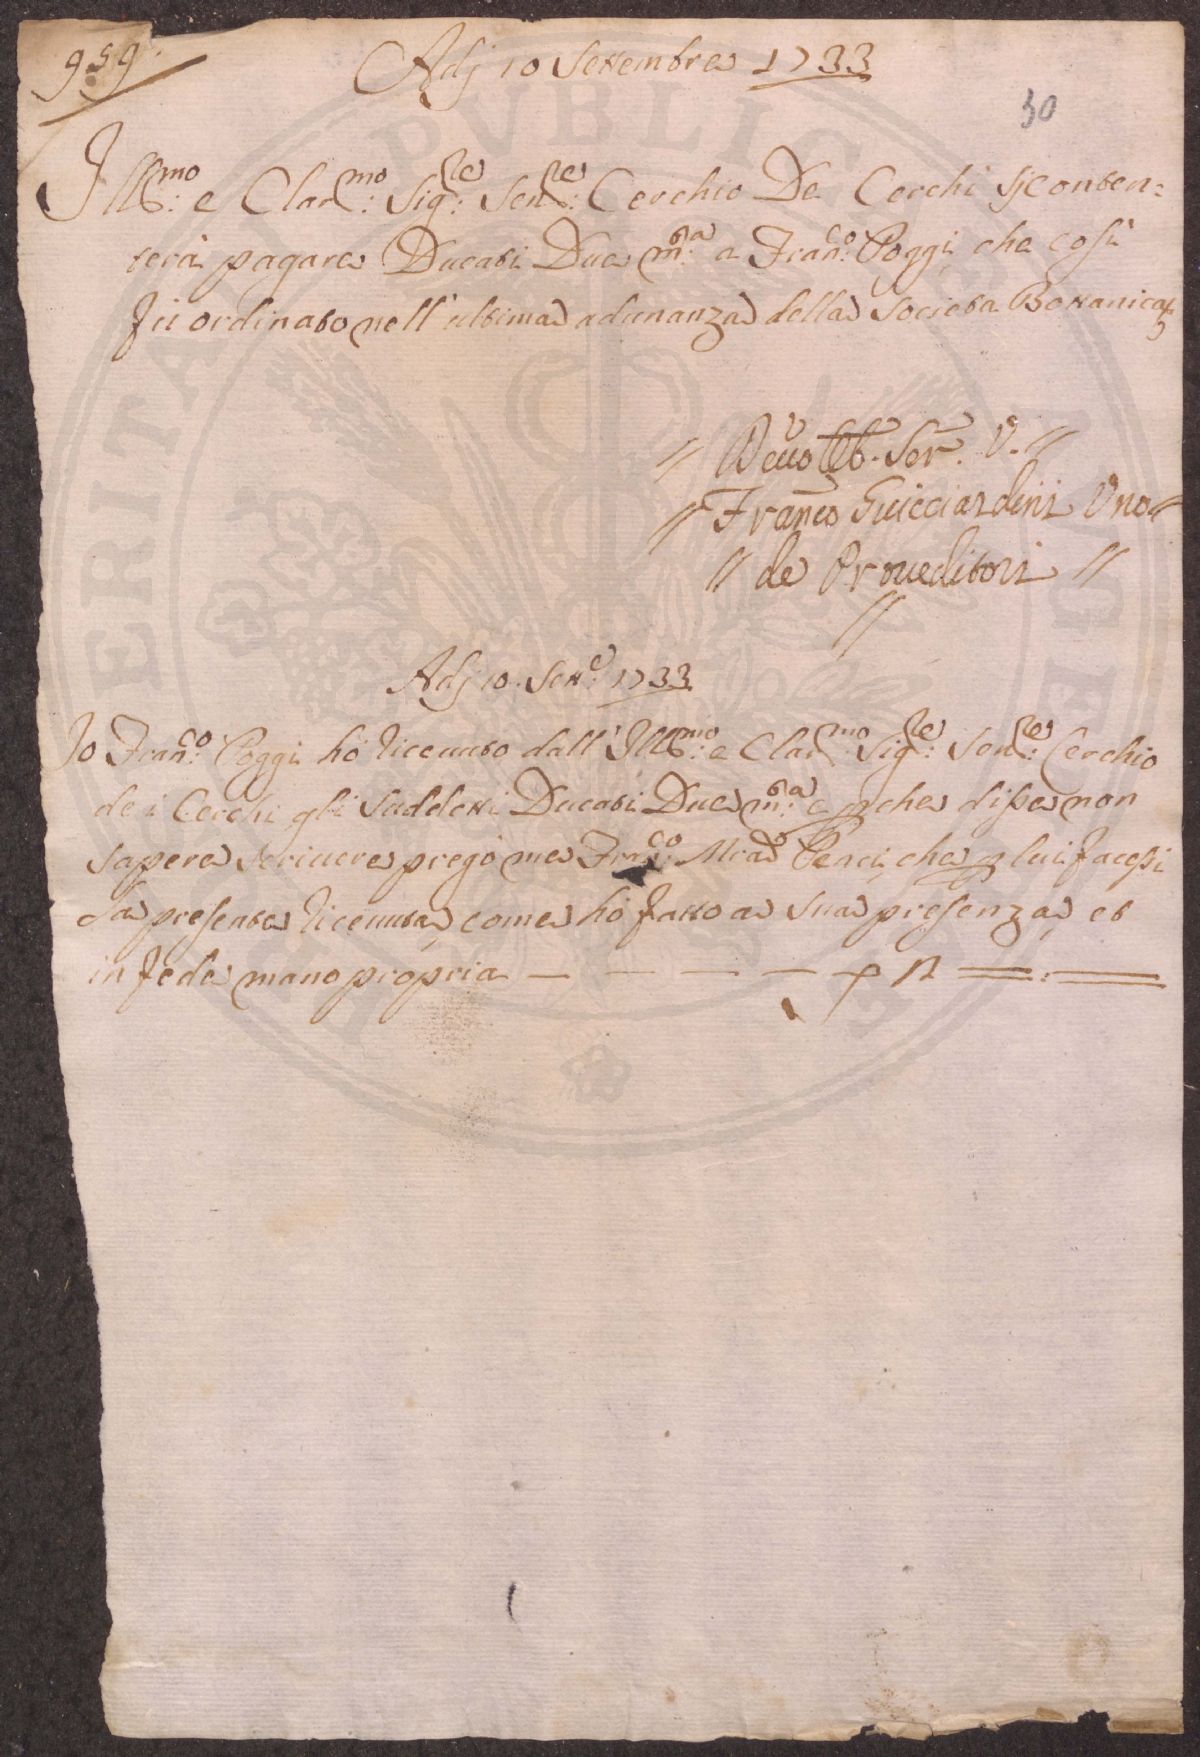 959.
Adj 10 Settembre 1733
30
Ill:mo e Clar:mo Sig:re Sen:re Cerchio De Cerchi si conten=
terà pagare Ducati Due m:ta a Fran:co Poggi, che così
fù ordinato nell'ultima adunanza della Società Bottanica
Devo Ob. Ser. V.
Franco Guicciardini Uno
de Proveditori
Adj 10. Sett:e 1733
Io Fran:co Poggi hò riceuuto dall'Ill:mo e Clar:mo Sig:re Sen:re Cerchio
de i Cerchi gli suddetti Ducati Due m:ta e p che disse non
sapere scriuere pregò me Fran:co Mra Penci, che p lui facessi
la presente riceuuta, come hò fatto a sua presenza, et
in fede mano propria
PVBLICA
VERITAT